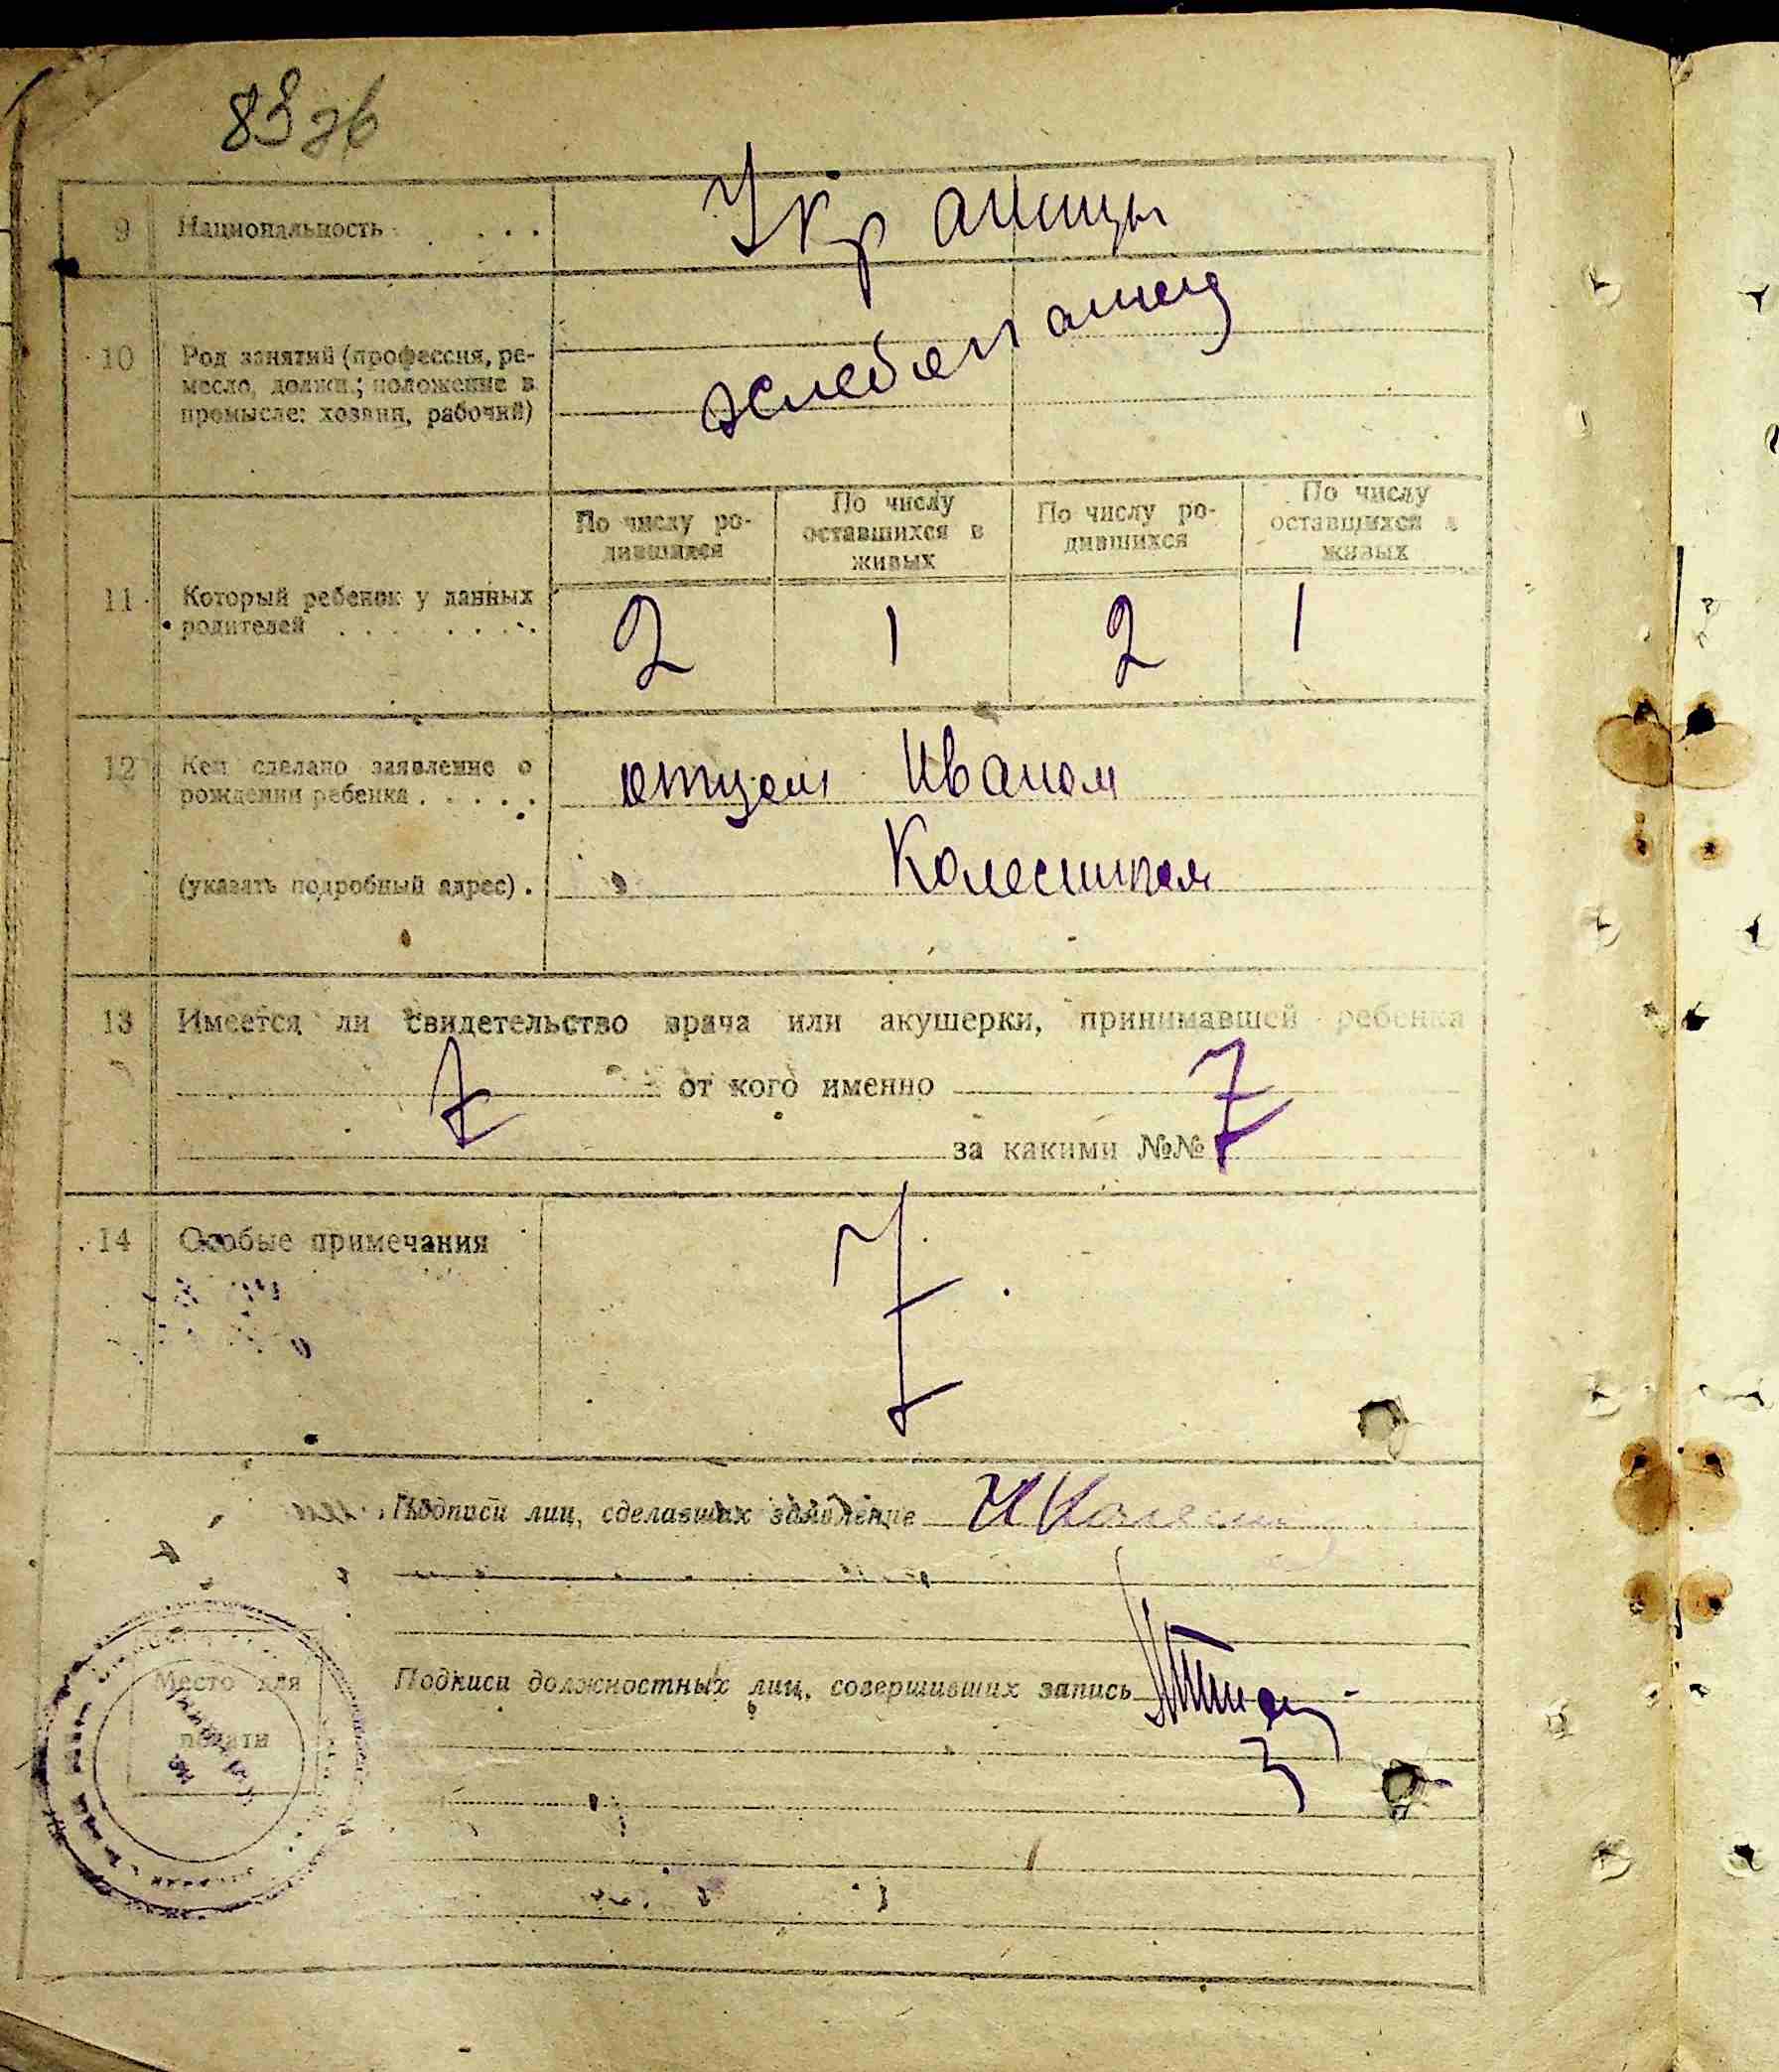 83 об
9 Национальность . . . . Украинцы
10 Род занятий (профессия, ре-
месло, должн.; положение в
промысле: хозяин, рабочий)
хлебопашец
По числу ро-
дившихся
По числу
оставшихся в
живых
По числу ро-
дившихся
По числу
оставшихся в
живых
11 Который ребенок у данных
родителей . . . . . . . .
2 1 2 1
12 Кем сделано заявление о
рождении ребенка . . . . .
отцем Иваном
(указать подробный адрес) . Колесником
13 Имеется ли свидетельство врача или акушерки, принимавшей ребенка
от кого именно
за какими №№
14 Особые примечания
Подписи лиц, сделавших заявление И Колесн
Подписи должностных лиц, совершивших запись
Место для
печати